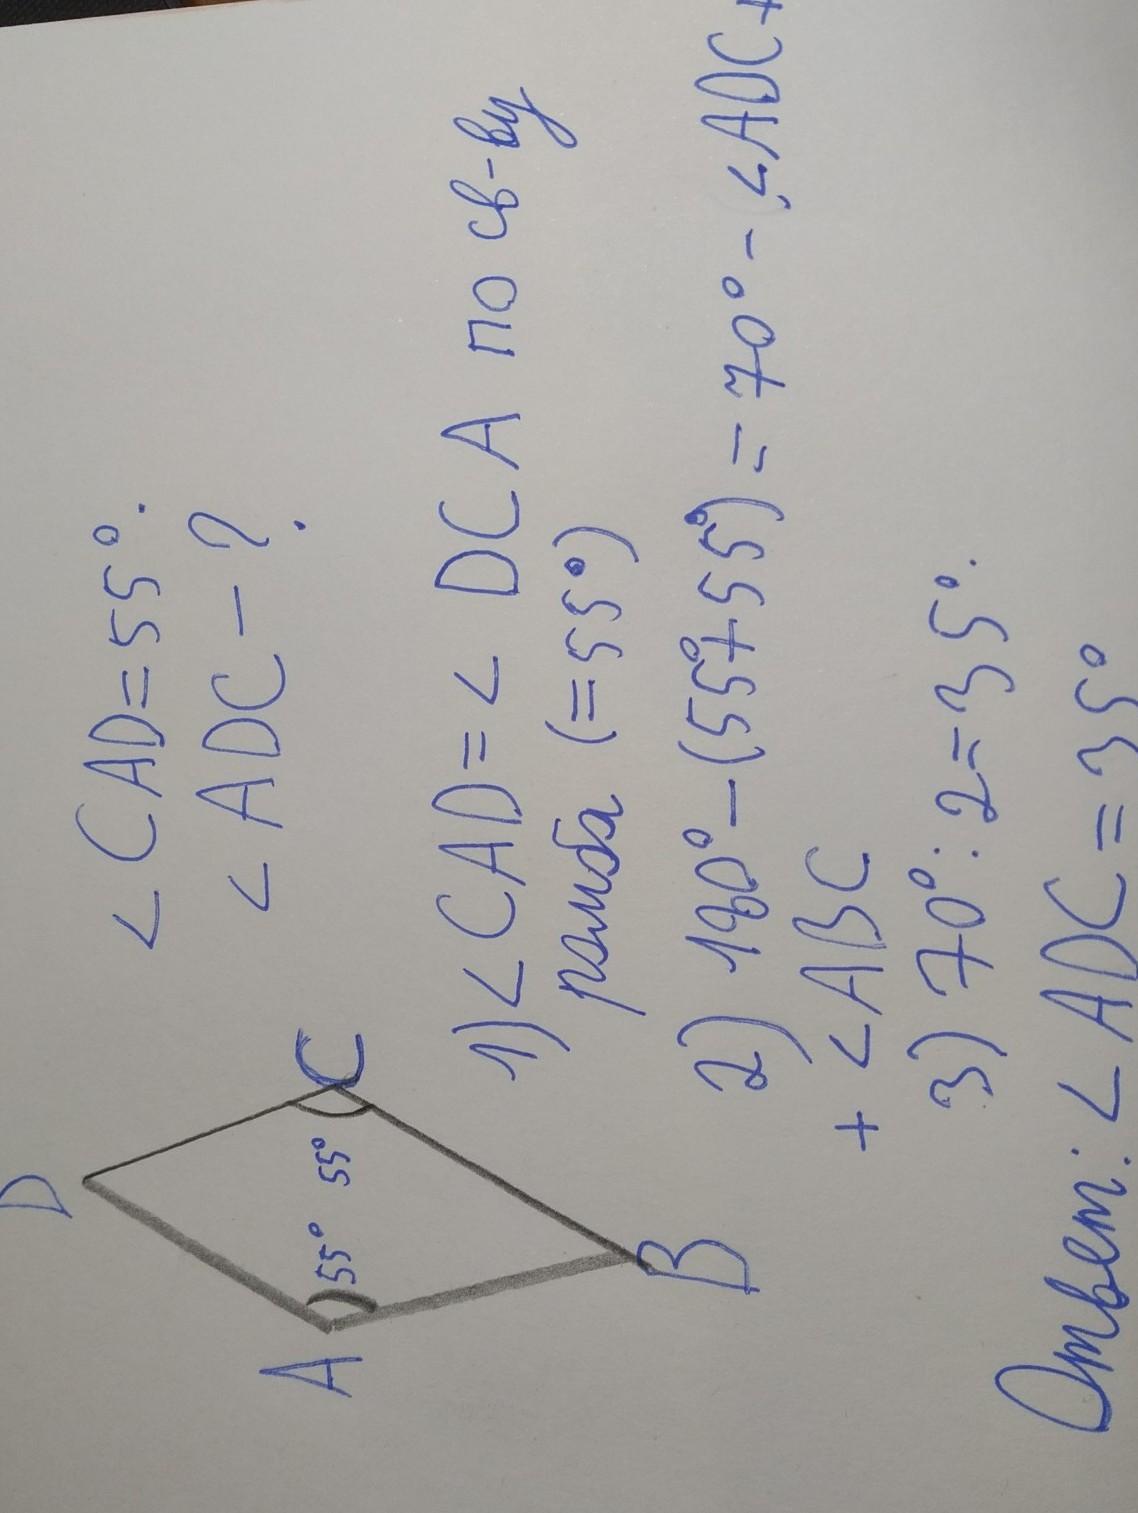 D
A
C
B
55°
55°
∠CAD=55°.
∠ADC-?
1)∠CAD=∠DCA по св-ву
ромба (=55°)
2) 180°-(55°+55°)=70°-∠ADC+
+∠ABC
3) 70°:2=35°.
Ответ: ∠ADC=35°